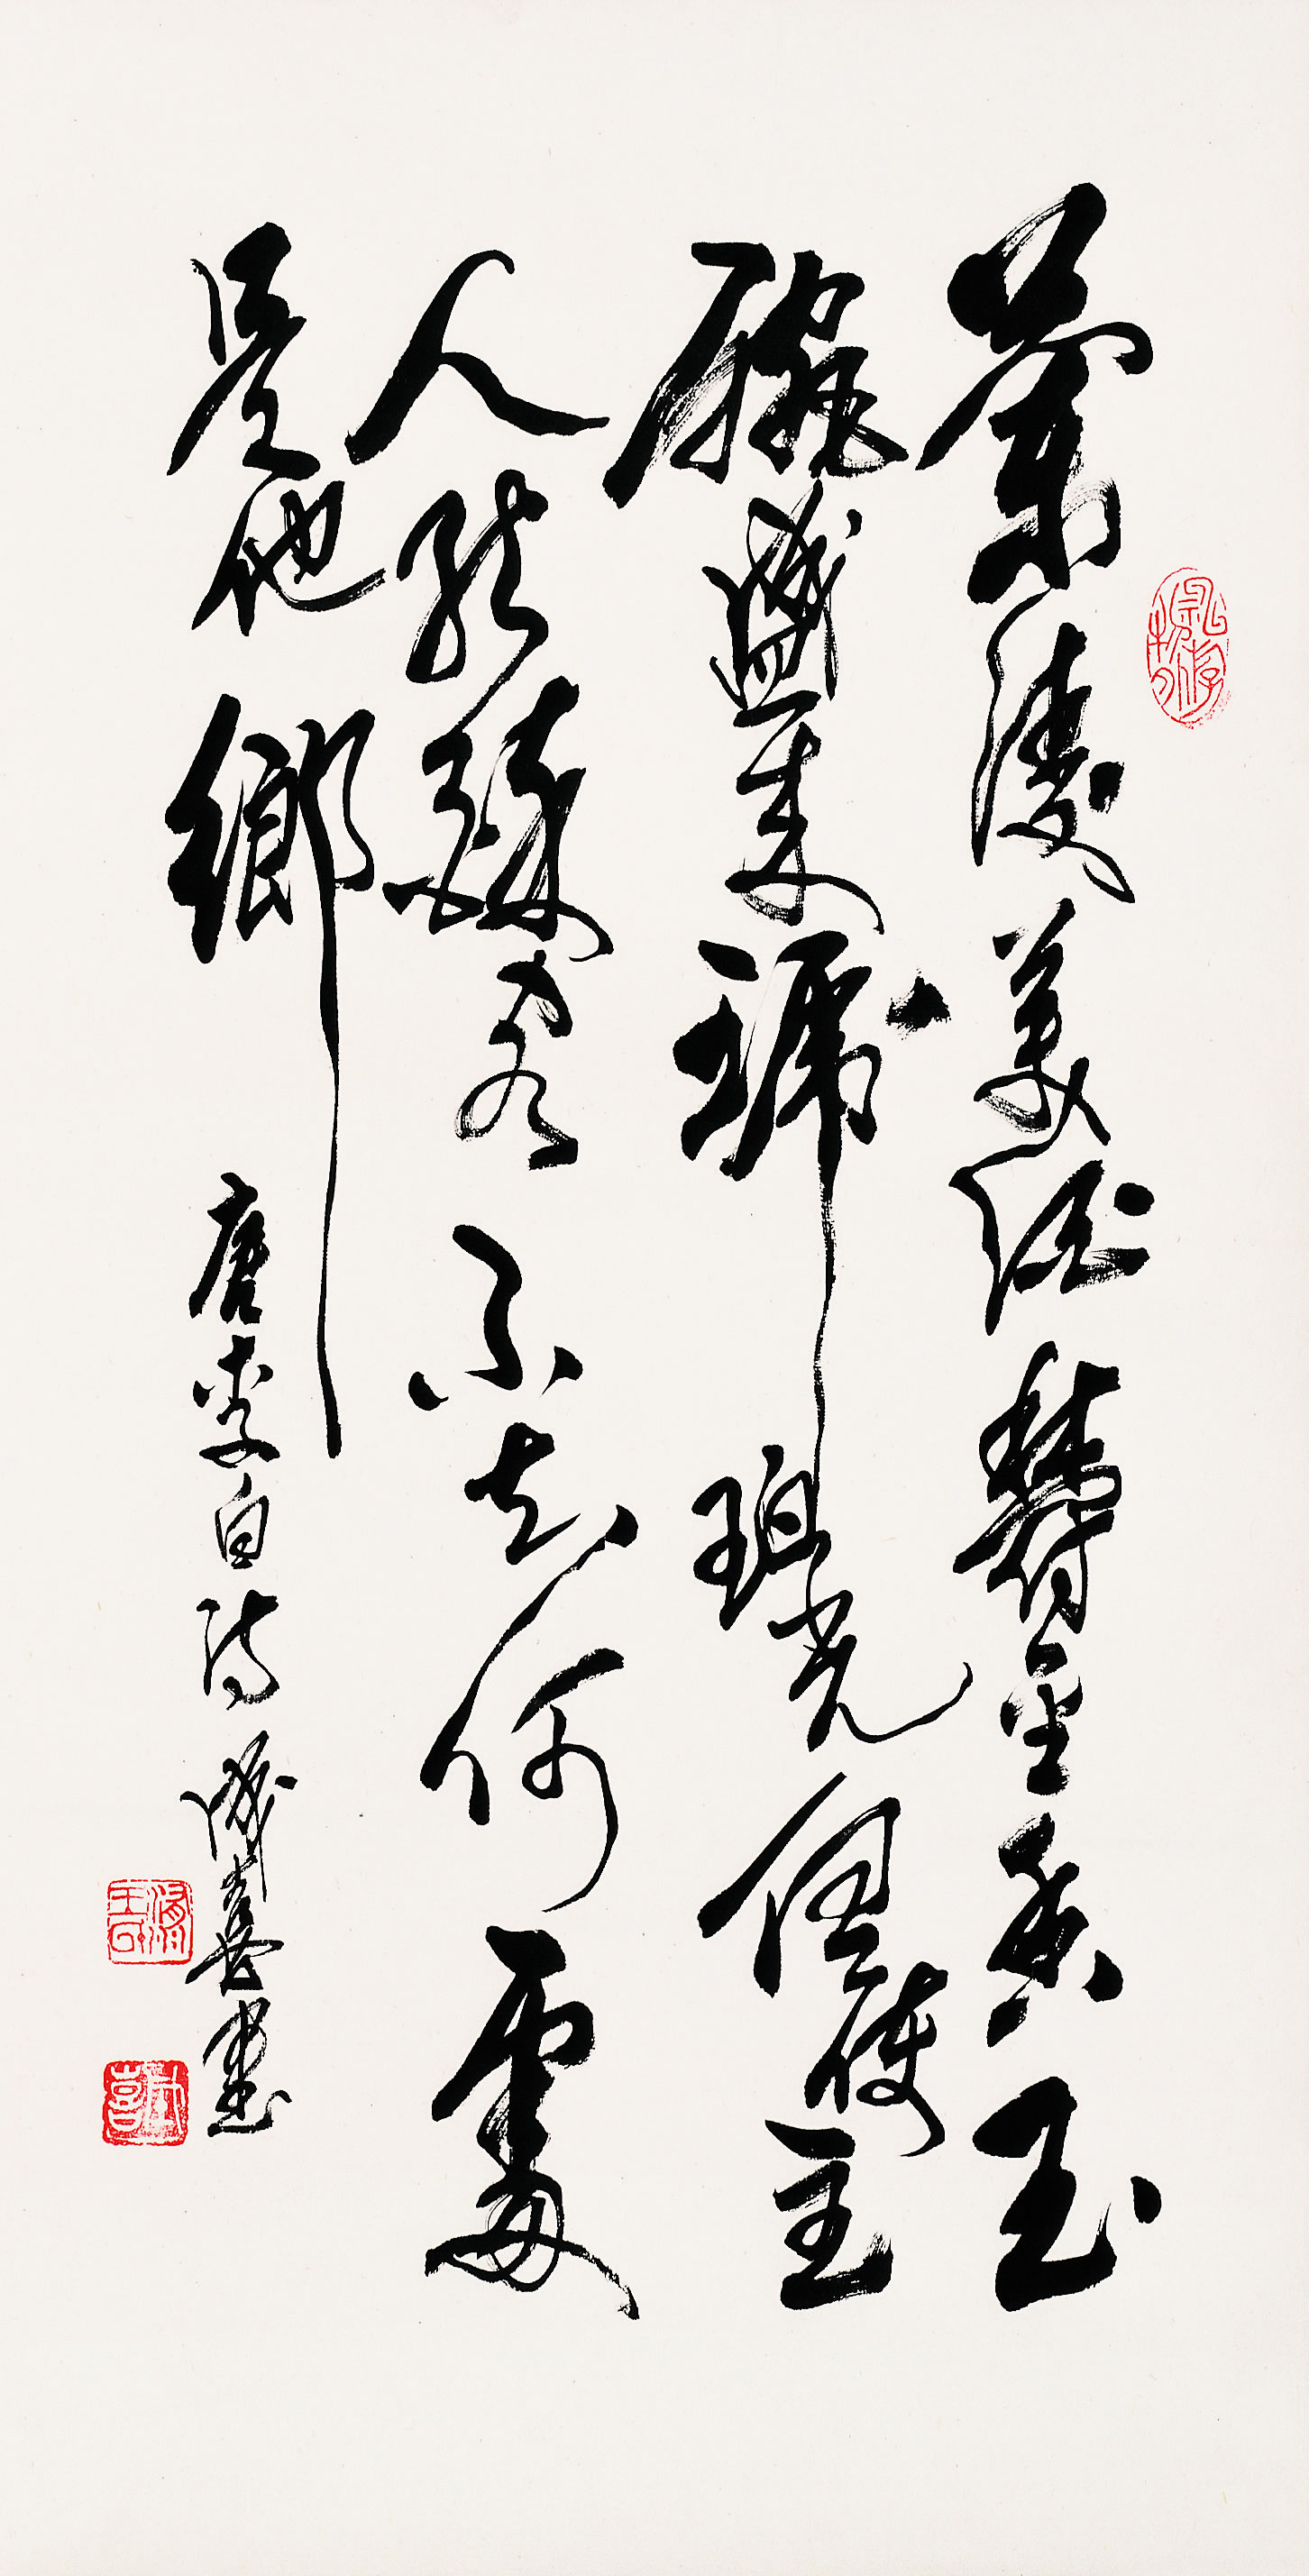 蘭陵美酒鬱金香玉
椀盛来琥珀光但使主
人能醉客不知何處
是他鄉
唐李白詩誠喜書